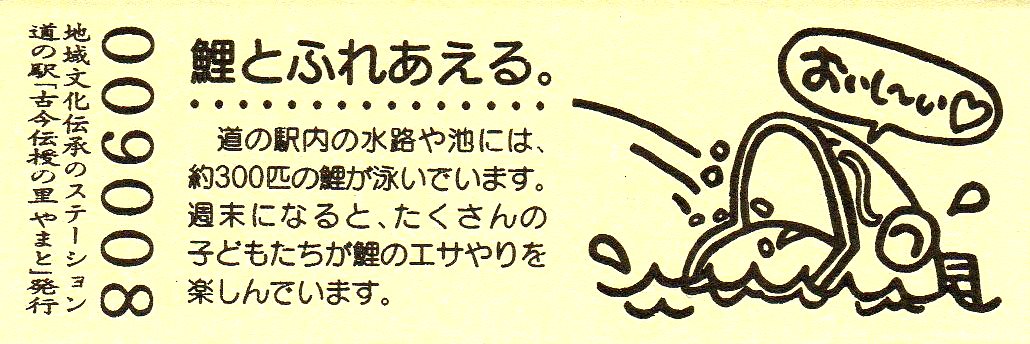 地域文化伝承のステーション
道の駅「古今伝授の里やまと」発行
009008
鯉とふれあえる。
道の駅内の水路や池には、
約300匹の鯉が泳いでいます。
週末になると、たくさんの
子どもたちが鯉のエサやりを
楽しんでいます。
おいし〜い♡